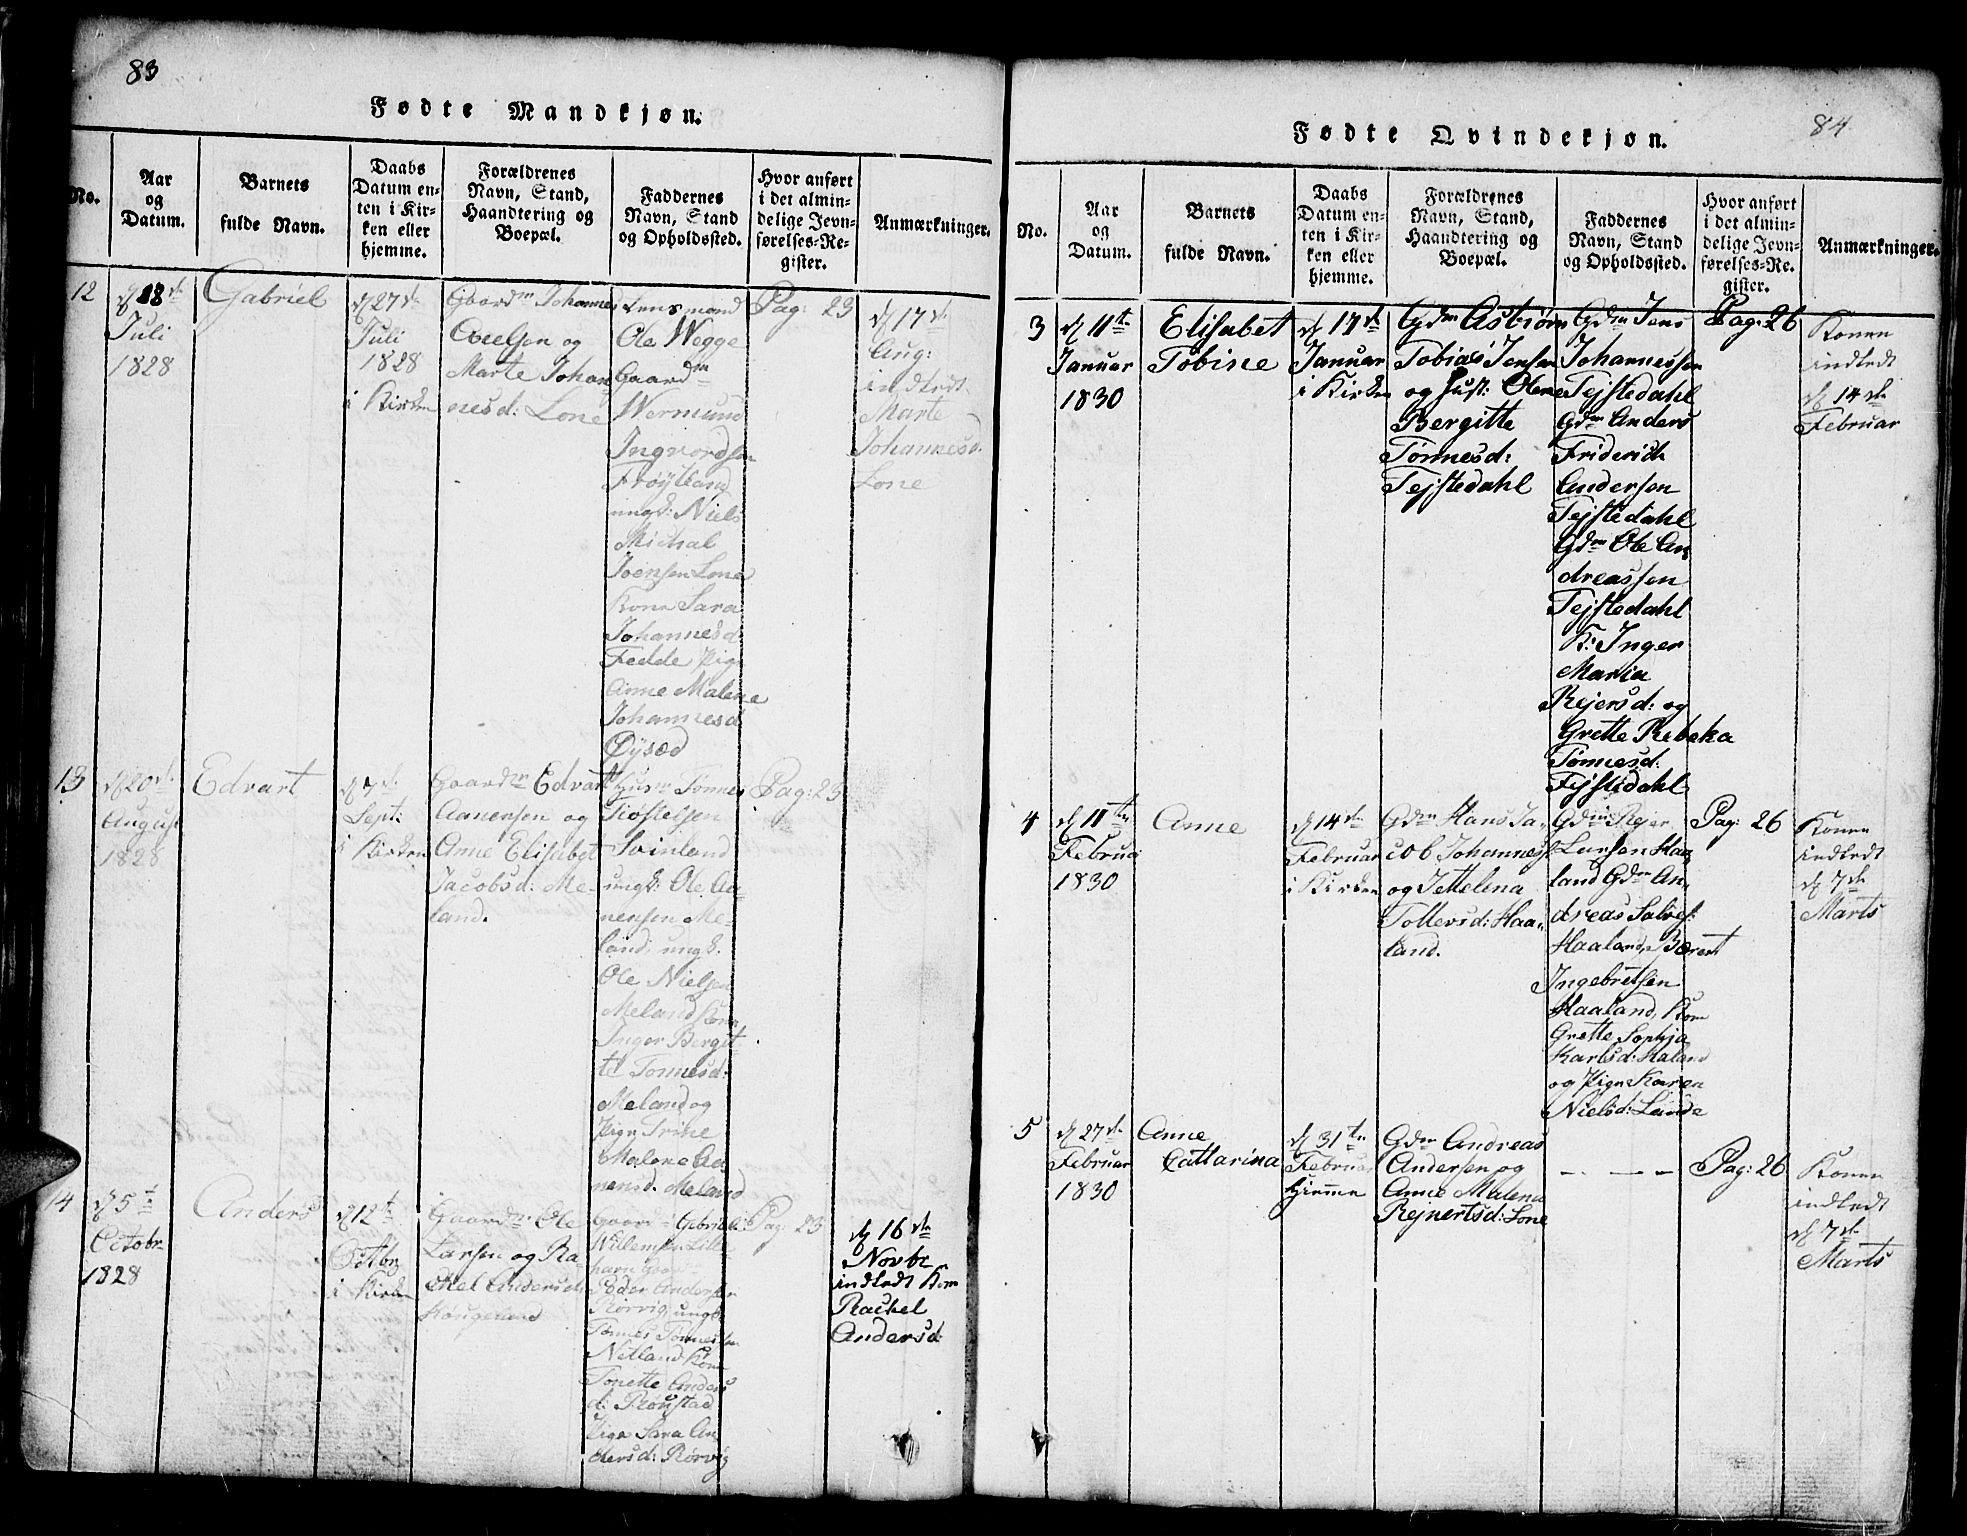 83
Fødte Mandkjøn.
No.
Aar
og
Datum.
Barnets
fulde Navn.
Daabs
Datum en-
ten i Kir-
ken eller
hjemme.
Forældrenes
Navn, Stand,
Haandtering og
Boepæl.
Faddernes
Navn, Stand
og Opholdssted.
Hvor anført
i det almin-
delige Jevn-
førelses-Re-
gister.
Anmærkninger.
12
18de
Juli
1828
Gabriel
27de
Juli
1828
i Kirken
Gaardm Johannes
Axelsen og
Marte Johan
nesd: Lone
Lensmand
Ole Wegge
Gaardm
Wermund
Ingvordsen
Frøytland
ungk: Niels
Michal
Joensen Lone
Kone Sara
Johannesd:
Fedde Pige
Anne Malene
Johannesd
Øysæd
Pag: 23
17de
Aug:
indledt
Marte
Johannesd.
Lone
13
20de
August
1828
Edvart
7de
Sept:
i Kirken
Gaardm Edvart
Aanensen og
Anne Elisabet
Jacobsd: Me-
land.
Husm Tønnes
Svinland
ungk: Ole Aa-
nensen Me-
land, ungk.
Ole Nielsen
Meland Kone
Inger Bergit
te Tonnesd:
Meland og
Pige Trine
Malene Aa
nensd. Meland
Pag: 23
14
5te
Octobr
1828
Anders
12te
Octbr
i Kirken
Gaardm Ole
Larsen og Ra-
chel Andersd:
Haugeland
Gaardm Gabriel
Willemsen Lille
Peder Andersen
Rørvig, ungk
Tønnes Tønnessen
Netland Kone
Tonette Anders
d: Røustad
Pige Sara An
dersd: Rørvig
Pag: 23
16de
Novbr
indledt Kone
Rachel
Andersd:
84
Fødte Qvindekjøn.
No.
Aar
og
Datum.
Barnets
fulde Navn.
Daabs
Datum en-
ten i Kir-
ken eller
hjemme.
Forældrenes
Navn, Stand,
Haandtering og
Boepæl.
Faddernes
Navn, Stand
og Opholdssted.
Hvor anført
i det almin-
delige Jevn-
førelses-Re-
gister.
Anmærkninger.
3
11te
Januar
1830
Elisabet
Tobine
17de
Januar
i Kirken
Gdm Asbiørn
Tobias Jensen
og Hust: Olene
Bergitte
Tønnesd:
Tejstedahl
Gdm Jens
Johannessen
Tejstedahl
Gdm Anders
Friderich
Andersen
Tejstedahl
Gdm Ole An
dreassen
Tejstedahl
K: Inger
Maria
Rejersd: og
Grette Rebeka
Tønnesd:
Tejstedahl
Pag: 26
Konen
indledt
14de
Februar
4
11te
Februar
1830
Anne
14de
Februar
i Kirken
Gdm Hans Ja-
cob Johanness:
og Jettelena
Tollevsd: Haa-
land.
Gdm Rejer
Larsen Haa
land Gdm An-
dreas Salves:
Haaland, Berent
Ingebretsen
Haaland, Kone
Grette Sophja
Karlsd: Haland
og Pige Karen
Nielsd: Lande
Pag: 26
Konen
indledt
7de
Marts
5
27de
Februar
1830
Anne
Cattarina
31te
Februar
hjemme
Gdm Andreas
Andersen og
Anne Malena
Rejnertsd: Lone
- - - -
Pag: 26
Konen
indledt
7de
Marts